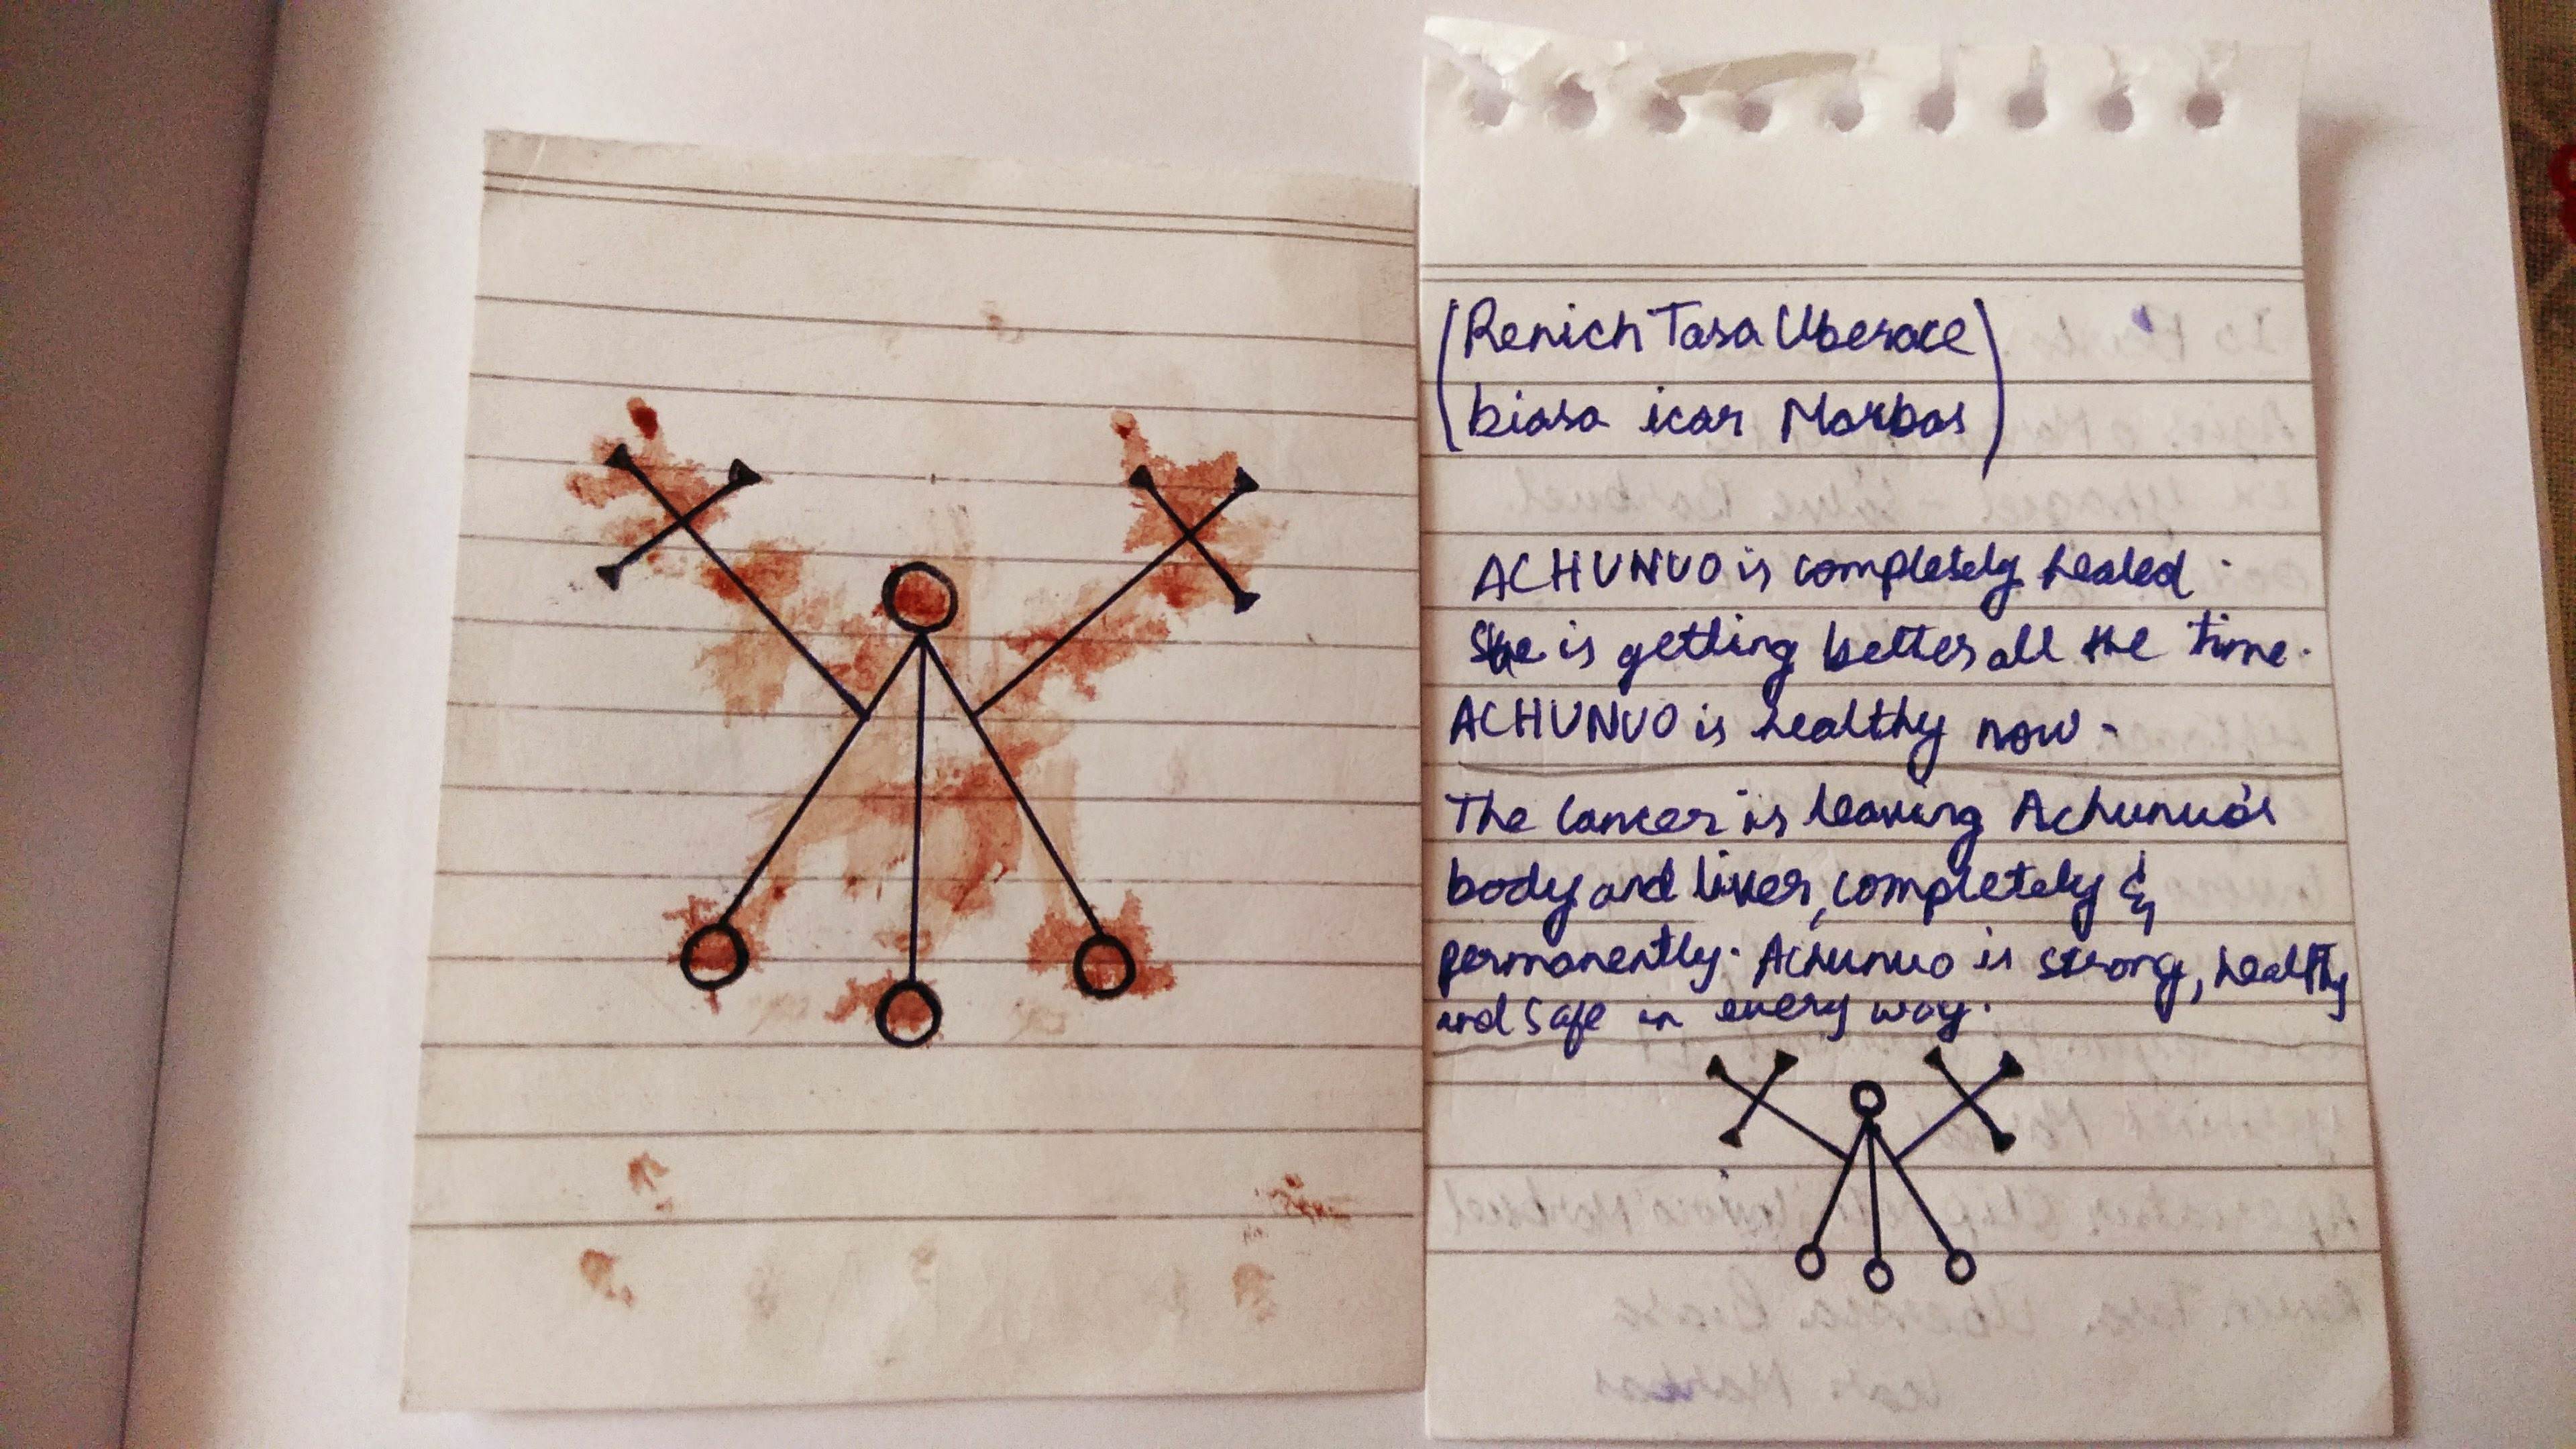 (Renich Tasa Uberace
biasa icar Marbas)
ACHUNUO is completely healed.
She is getting better all the time.
ACHUNUO is healthy now-
The Cancer is leaving Achunuo's
body and liver, completely &
permanently. Achunuo is strong, healthy
and safe in every way.